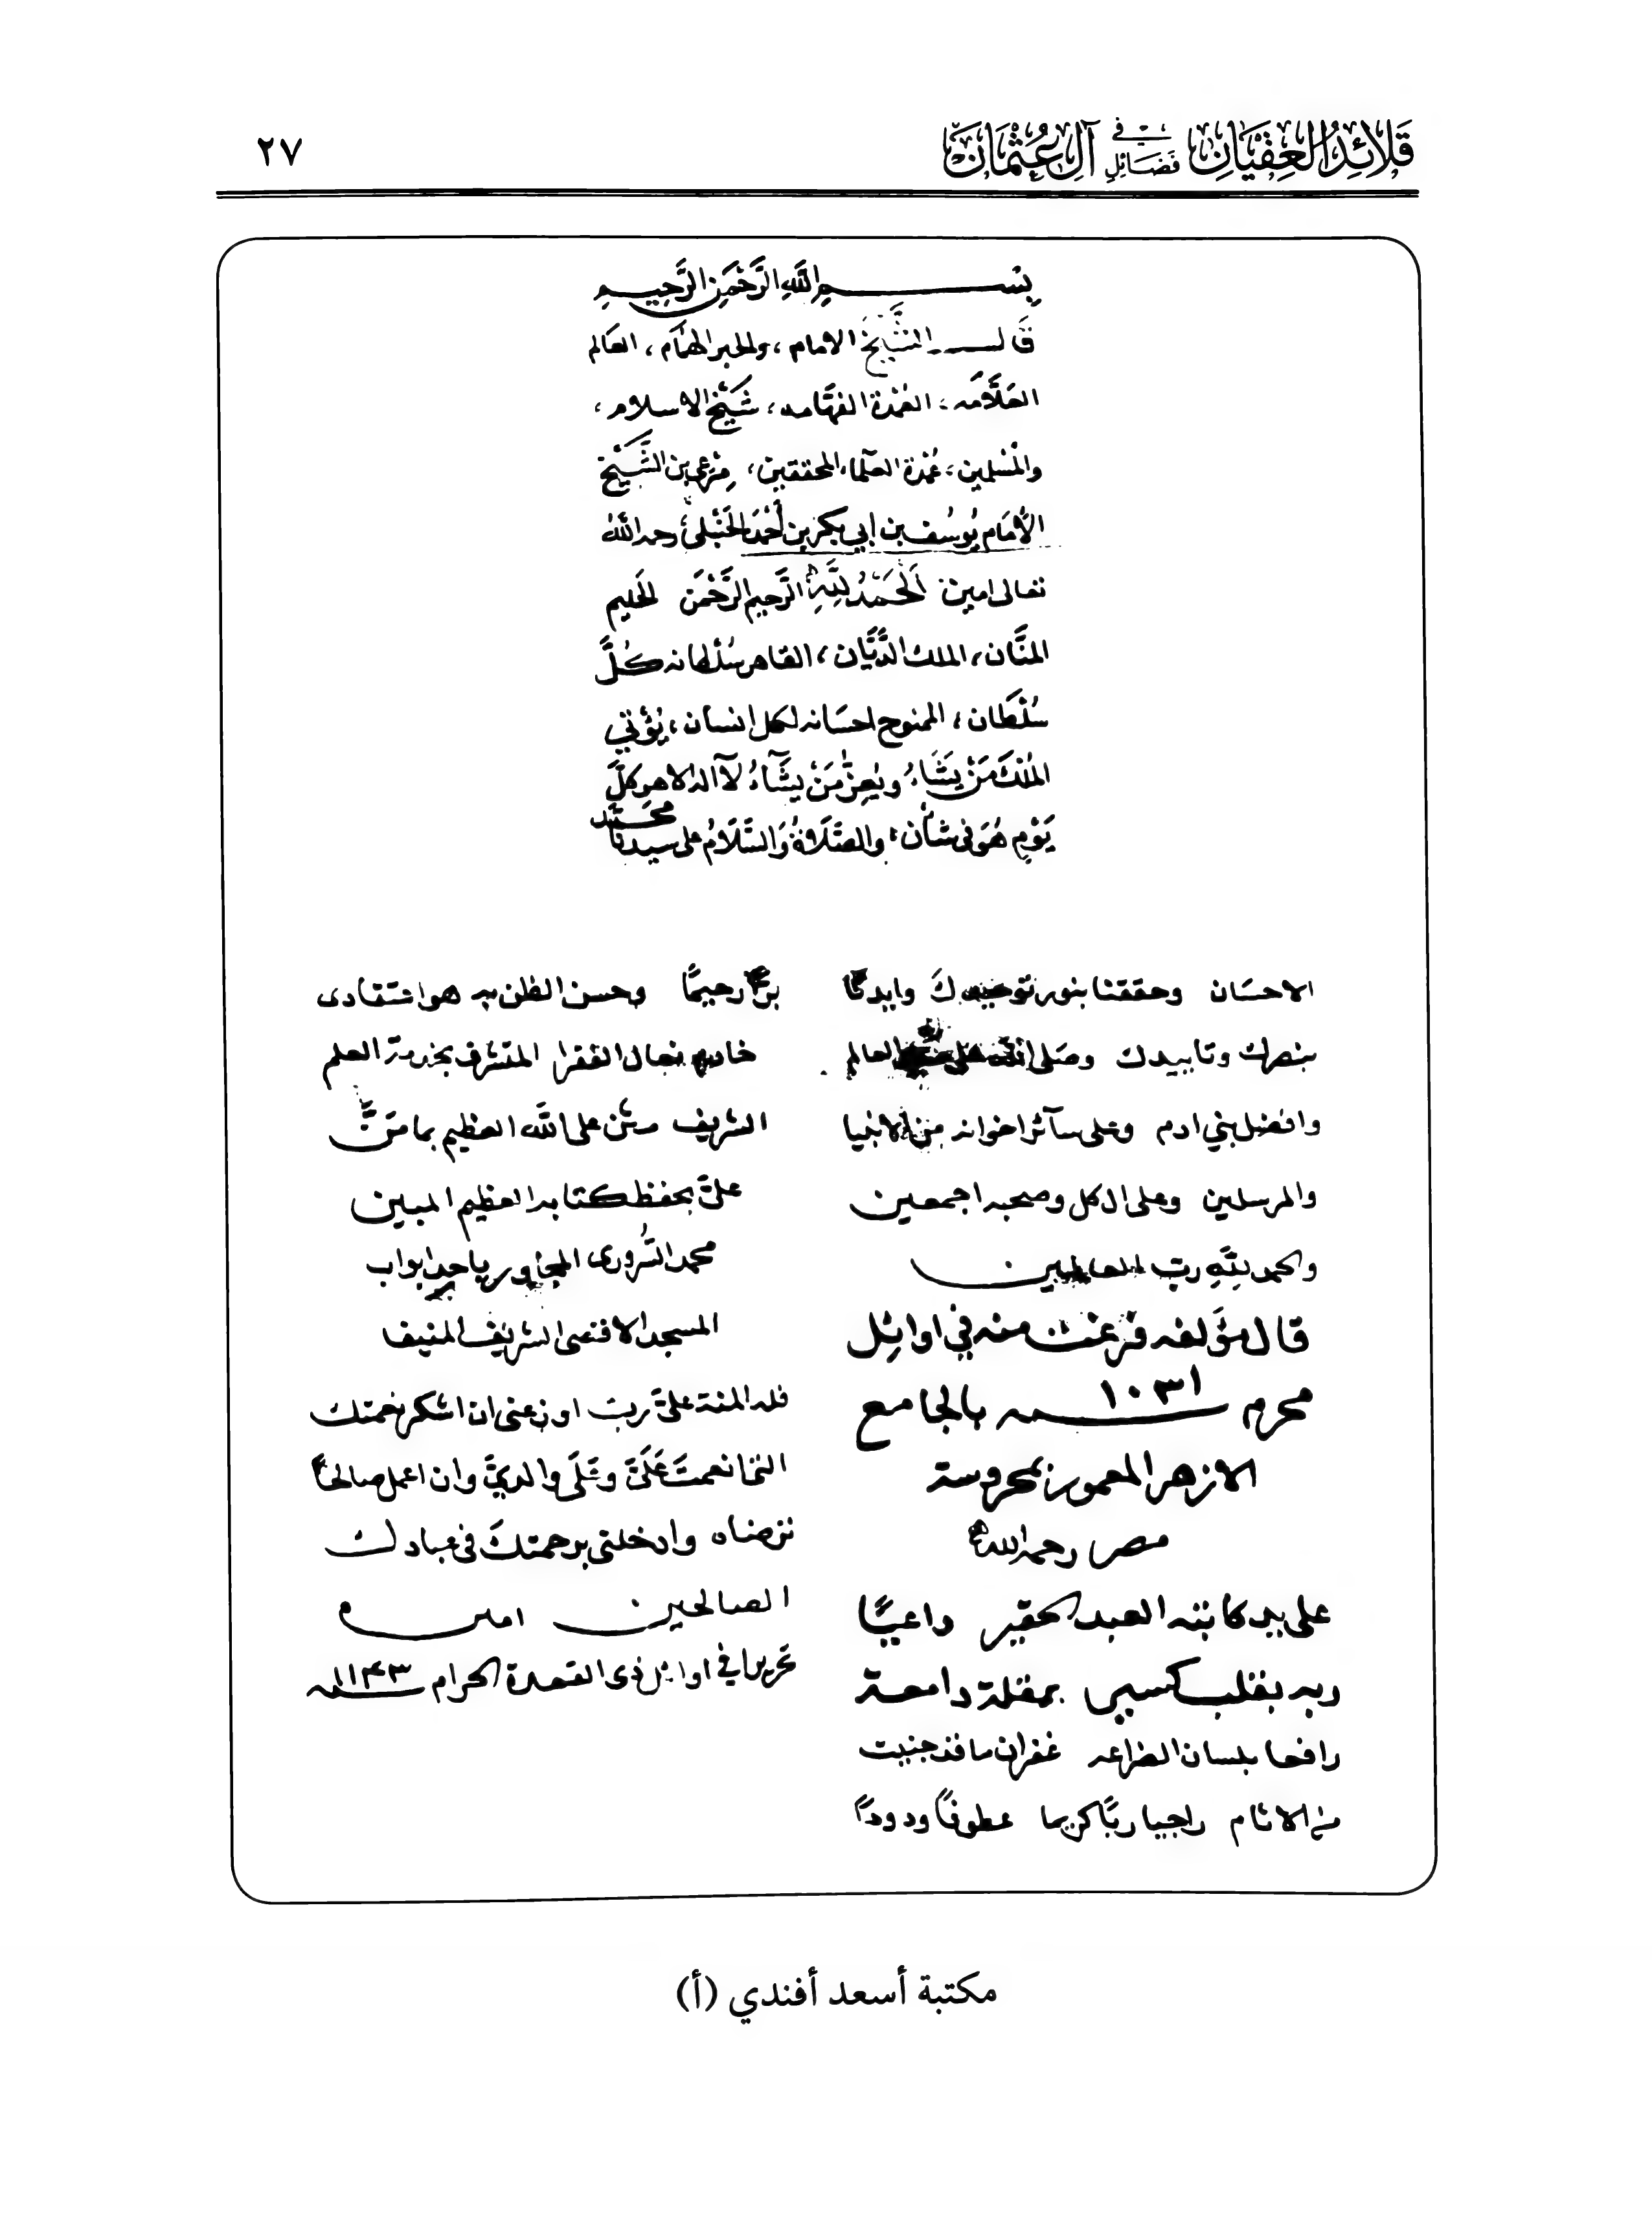 قَلَائِدُ العِقْيَانِ فِي فَضَائِلِ آلِ عُثْمَانَ
٢٧
بِسْمِ اللَّهِ الرَّحْمَنِ الرَّحِيمِ
قَالَ الشَّيْخُ الامام، والحبر الهمَام، العَالم
العَلَّامَه، العُمْدَة الفهَّامه، شَيْخ الاسلام،
والمُسْلمين، عُمْدَة العلَماء المحققين، مَرْعي بن الشَّيْخ
الإمَام يُوسُف بن ابي بكر بن أحْمَد الحَنْبَلي رحمه اللهُ
تعالى امين الحَمْدُ لِلَّهِ الرَّحيم الرَّحْمَن الحَليم
المنَّان، الملك الدَّيَّان، القاهر سُلْطانه كُلَّ
سُلْطَان، الممنوح احسَانه لكل انسان، يُؤْتي
المُلْكَ مَنْ يَشَاءُ ويُعِزُّ مَنْ يَشَآءُ لآ اله الا هو كلَّ
يَوْمٍ هُوَ فى شأن، والصَّلَاةُ وَالسَّلَامُ على سيدنا محَمَّد
الاحسَان وحققنا بنور توحيدكَ وايدنا
بنصرك وتاييدك وصَلى الله على العالم
وافضل بني ادم وعلى سآئر اخوانه من الانبيا
والمرسلين وعلى ال كل وصحبه اجمعين
والحمد للَّهِ ربِّ العالمين
قال مؤلفه فرغت منه في اوائِل
محرم سنة ١٠٣١ بالجامع
الازهر المعمور بمحروسة
مصر رحمه الله
على يد كاتبه العبد الحقير داعيًا
ربه بقلب كسير بمقلة دامعة
رافعا بلسان الضراعه غفران ما قد جنيت
من الاثام راجيا ربًّا كريما عطوفًا ودودًا
برًّا رحيمًا وحسن الظن به هو اعتقادى
خادم نعال الفقرا المتشرف بخدمة العلم
الشريف ومن على الله العظيم بما منَّ
عليَّ بحفظ كتابه العظيم المبين
محمد السُّرورى المجاور باحد ابواب
المسجد الاقصى الشريف المنيف
فله المنة عليَّ ربِ اوزعنى ان اشكر نعمتك
التى انعمتَ عَلَيَّ وعَلَى والديَّ وان اعمل صالحًا
ترضاه وادخلنى برحمتكَ فى عبادك
الصالحين امين
تحريرا في اوائل ذى القعدة الحرام سنة ١١٤٣
مكتبة أسعد أفندي (أ)